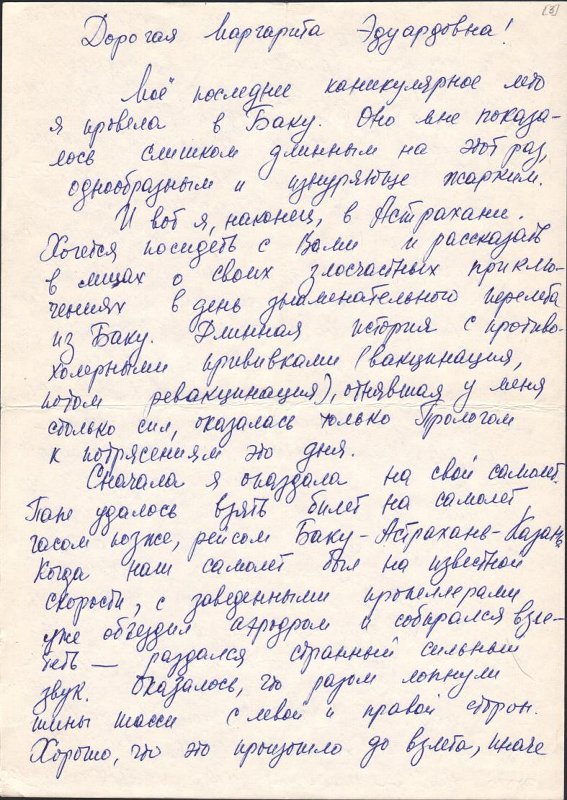 [8]
Дорогая Маргарита Эдуардовна!
Моё последнее каникулярное лето
я провела в Баку. Оно мне показа-
лось слишком длинным на этот раз,
однообразным и изнуряюще жарким.
И вот я, наконец, в Астрахани.
Хочется посидеть с Вами и рассказать
в лицах о своих злосчастных приклю-
чениях в день знаменательного перелета
из Баку. Длинная история с противо-
холерными прививками (вакцинация,
потом ревакцинация), отнявшая у меня
столько сил, оказалась только Прологом
к потрясениям это дня.
Сначала я опаздала на свой самолет.
Папе удалось взять билет на самолет,
часом позже, рейсом Баку-Астрахань-Казань
Когда наш самолет был на известной
скорости, с заведенными пропеллерами
уже объездил аэродром и собирался взле-
теть — раздался странный сильный
звук. Оказалось, что разом лопнули
шины шасси с левой и правой сторон.
Хорошо, что это произошло до взлета, иначе